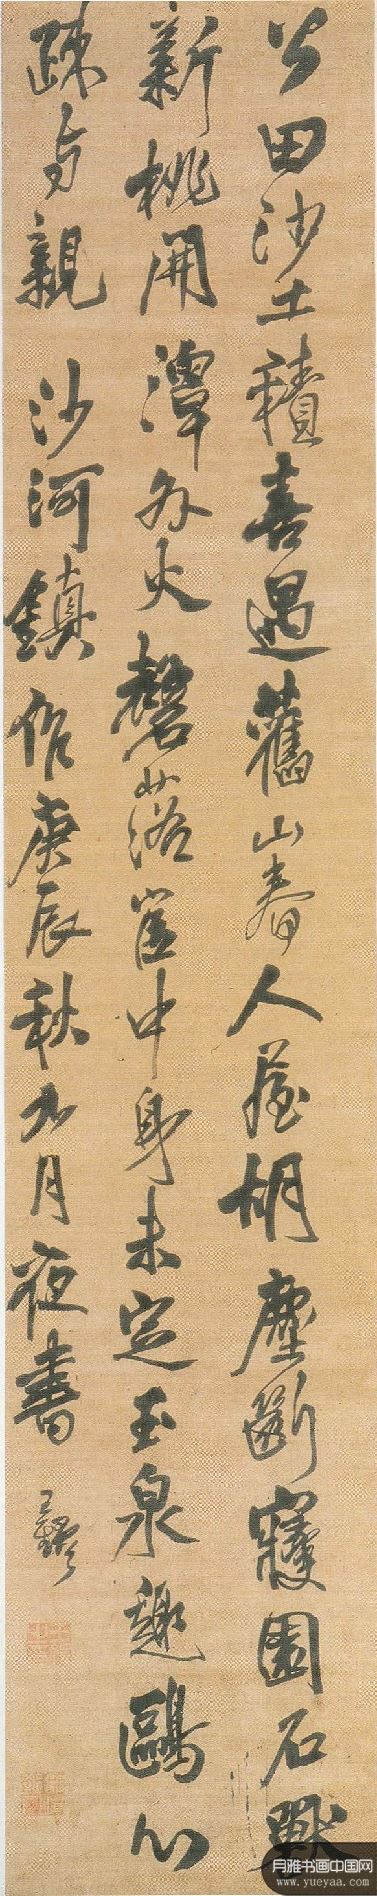 公田沙土積喜遇舊山春人屋胡塵斷寢園石獸
新桃開潭外火磬落崖中身未定玉泉趣鷗心
疎与親 沙河鎮作庚辰秋九月夜書 王鐸
月雅书画中国网
www.yueyaa.com